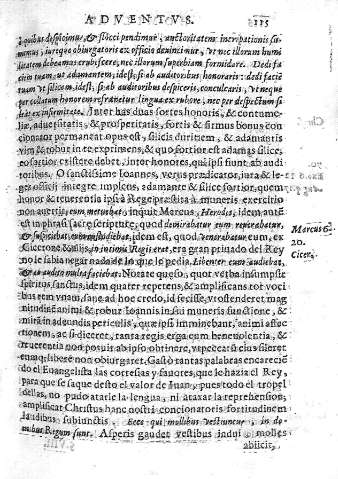 ADVENTVS. 115
à quibus despicimur, & flocci pendimur, auctoritatem increpationis su-
mimus, iureque obiurgatoris ex officio deuincimur, vt nec illorum humi
litatem debeamus erubescere, nec illorum superbiam formidare. Dedi fa
ciem tuam, vt adamantem, idest, si ab auditoribus honoraris: dedi facie
tuam vt silicem, idest, si ab auditoribus despiceris, conculcaris, vt neque
per collatum honorem refranetur lingua ex rubore, nec per despectum si
ex infirmitate. Inter has duas sortes honoris, & contume-
liæ, aduersitatis, & prosperitatis, fortis & firmus bonus con
cionator permaneat opus est, silicis duritiem, & adamantis
vim & robur in te exprimens, & quo fortior est adamas silice,
eo fortior existere debet, inter honores, qui ipsi fiunt ab audi
toribus. O sanctissime Ioannes, verus prædicator, iura & le-
ges officij integre implens, adamante & silice fortior, quem
honor & reuerentia ipsi à Rege præstita à muneris exercitio
non auertit, eum metuebat, inquit Marcus, Herodes, idem autē
est in phrasi sacræ scripturæ; quod admirabatur eum reuerebatur,
& suspiciebat, custodiebat, idem est, quod venerabatur eum, ex
Cicerone & alijs, in oculis Regis erat, era gran priuado del Rey
no le sabia negar nada de lo que le pedia. Libenter eum audiebat,
& eo audito multa faciebat. Notate quæso, quot verba insumpse
spiritus sanctus, idem quater repetens, & amplificans tot voci
bus rem vnam, sane ad hoc credo, id fecisse, vt ostenderet mag
nitudinē animi & robur Ioannis in sui muneris functione, &
mirā in adeundis periculis, quæ ipsi imminebant, animi affec-
tionem, ac si diceret, tanta regis erga eum beneuolentia, &
reuerentia non potuit ab ipso obtinere, vt peccata eius sileret
eumq; libere non obiurgaret. Gastò tantas palabras encarecie
do el Euangelista las cortesias y fauores, que le hazia el Rey,
para que se saque desto el valor de Iuan, pues todo el tropel
dellas, no pudo atarle la lengua, ni atajar la reprehension;
amplificat Christus hanc nostri concionatoris fortitudinem
laudibus subiunctis. Ecce qui mollibus vestiuntur, in do-
mibus Regum sunt. Asperis gaudet vestibus indui, molles
abiicit,
Marcus 6.
20.
Cicer.